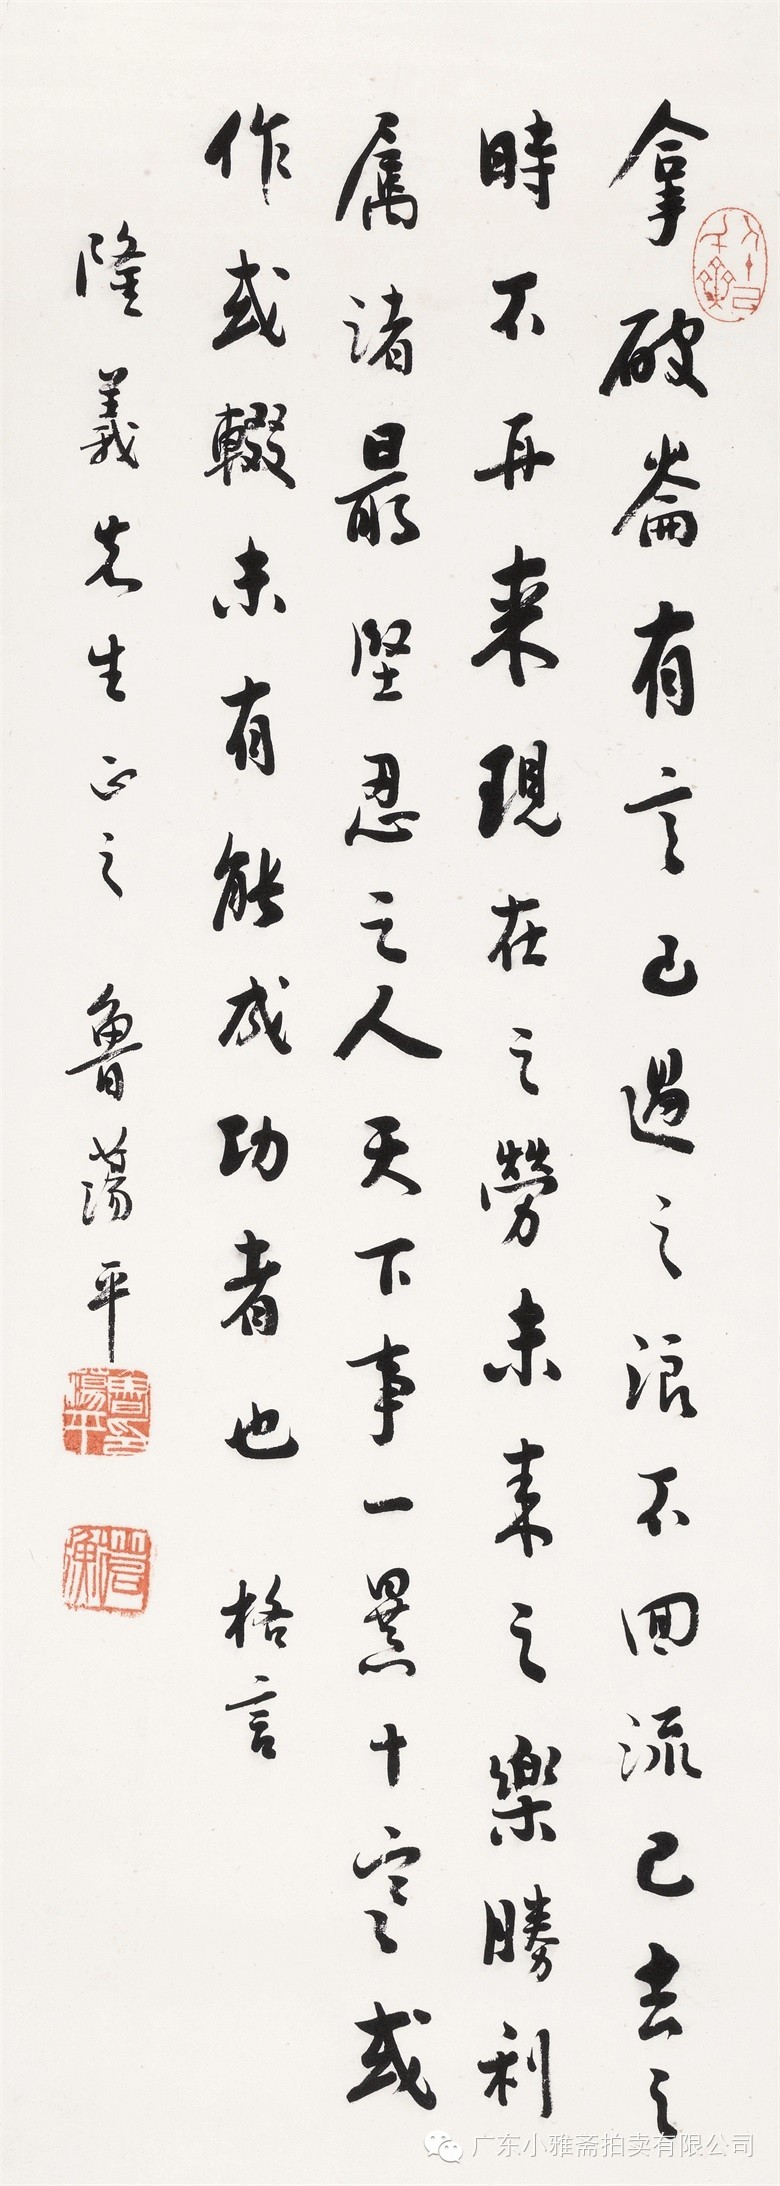 拿破崙有言已過之浪不回流已去之
時不再來現在之勞未來之樂勝利
屬諸最堅忍之人天下事一暴十寒或
作或輟未有能成功者也 格言
隆義先生正之 魯蕩平
魯蕩平印
广东小雅斋拍卖有限公司